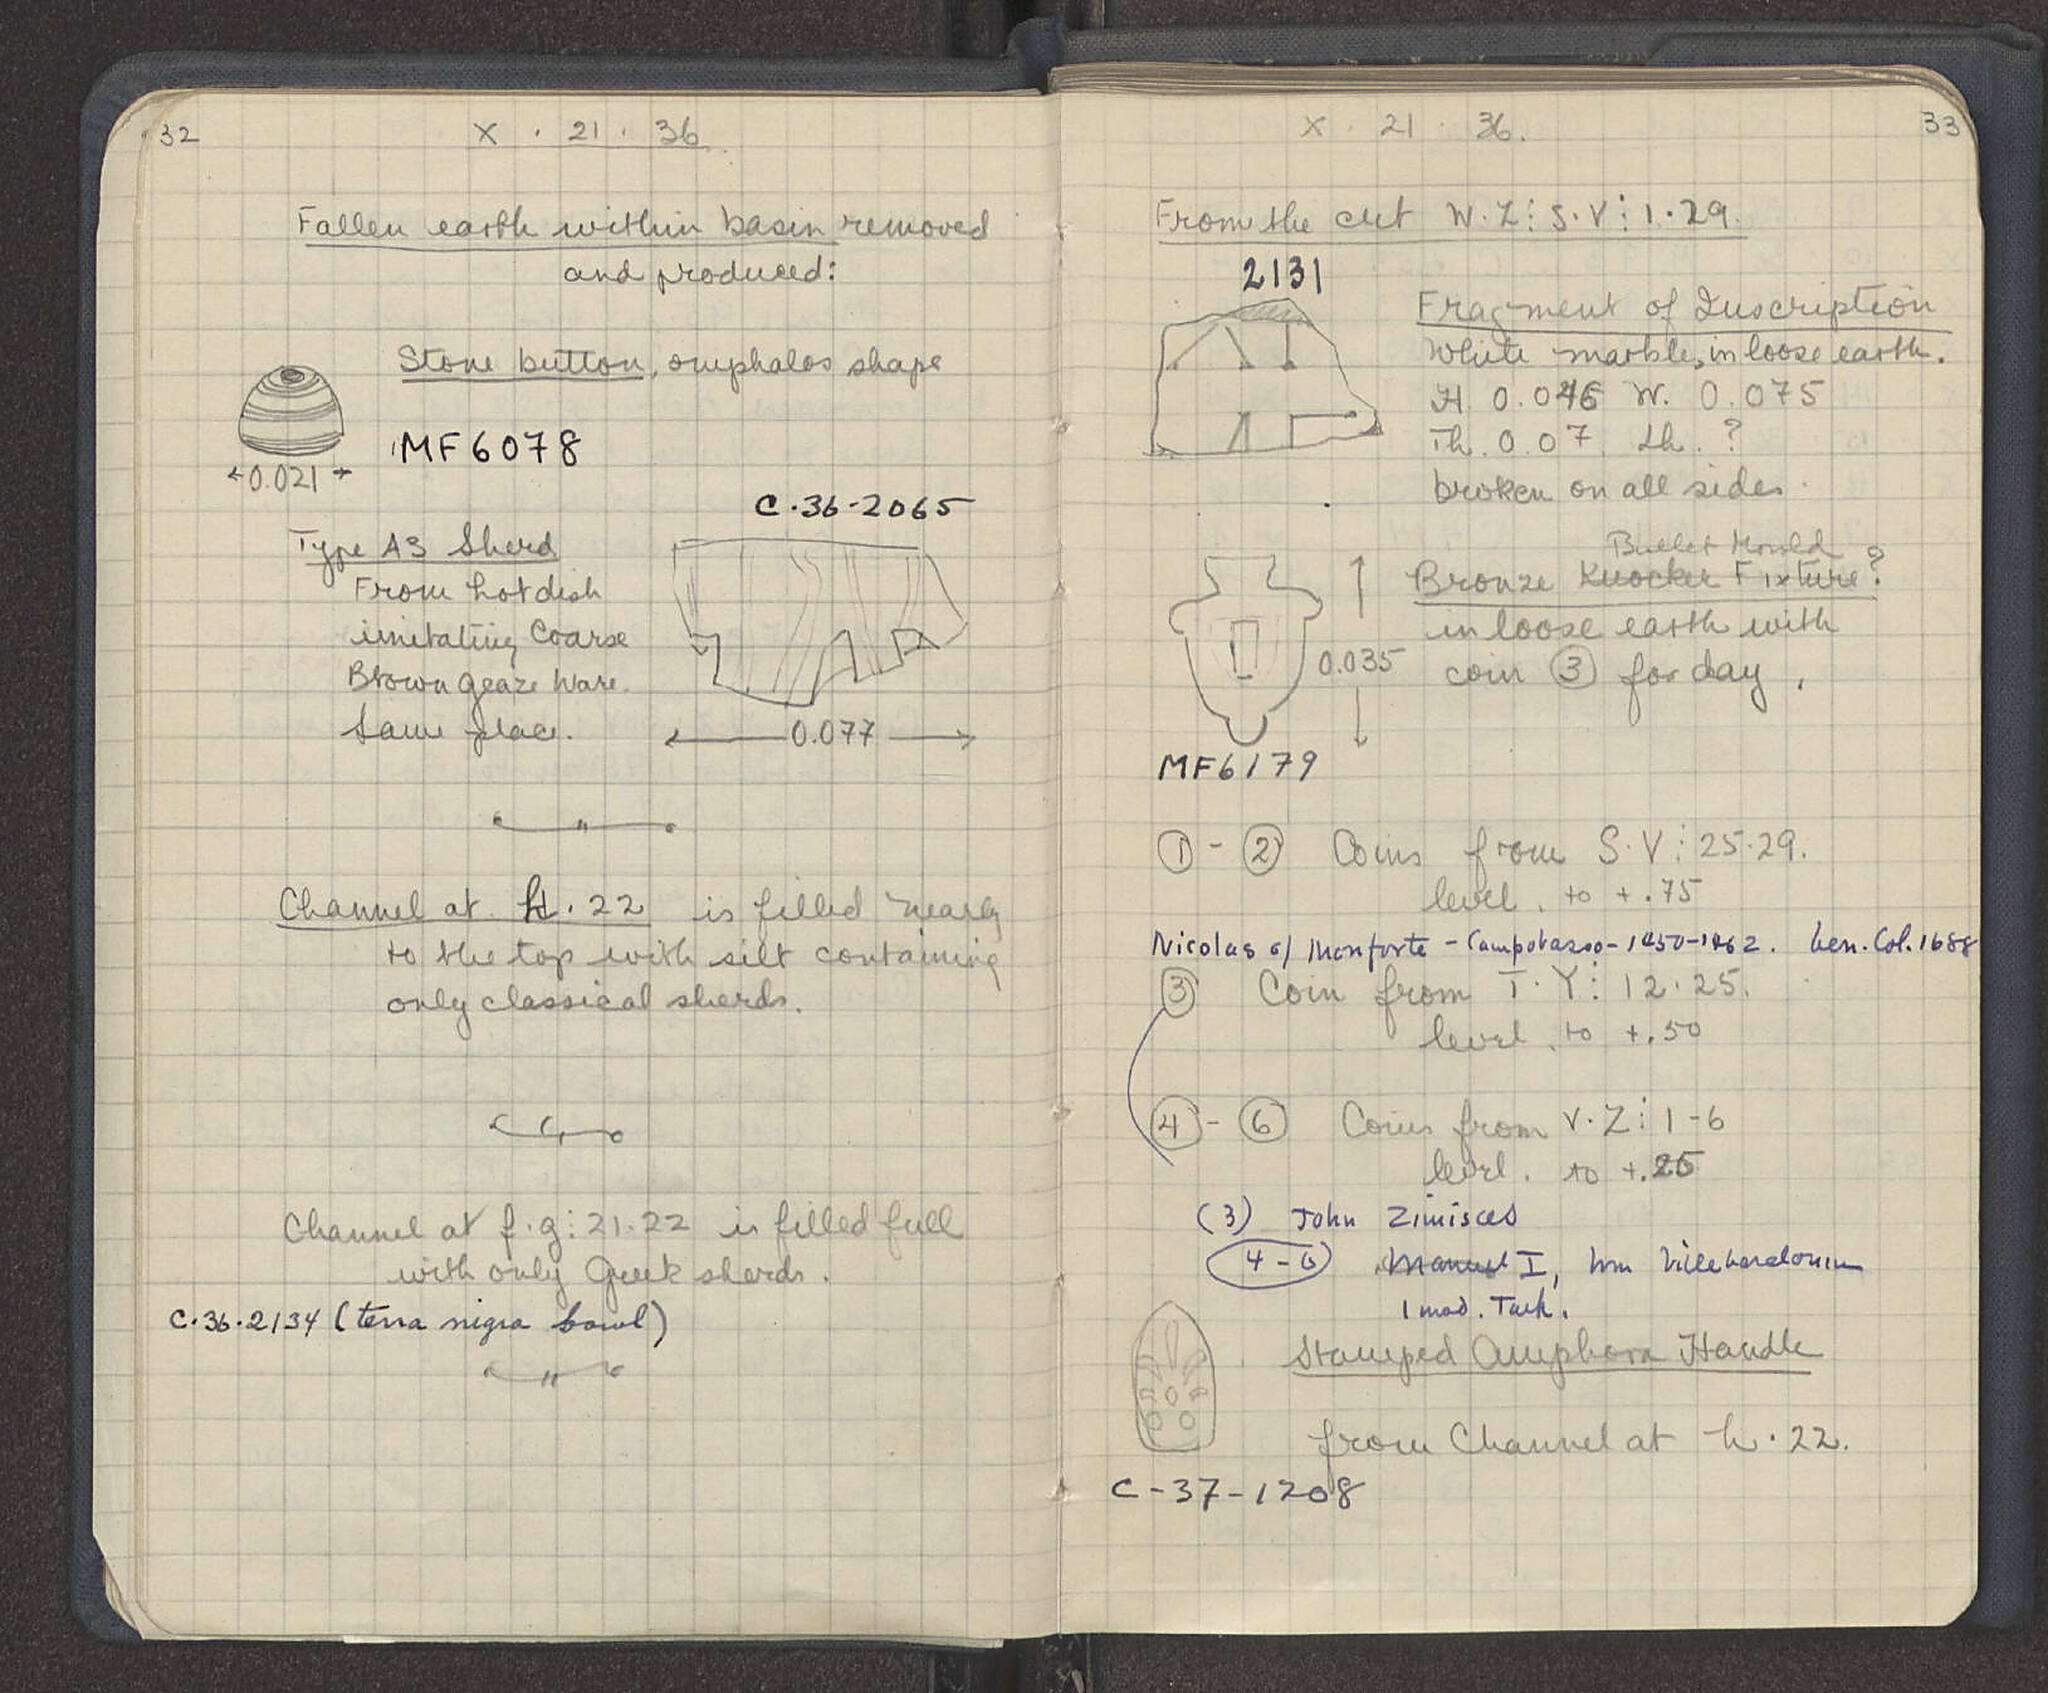 32
X · 21 · 36
Fallen earth within basin removed
and produced:
Stone button, omphalos shape
MF6078
0.021
C·36-2065
Type A3 Sherd
From hot dish
imitating Coarse
Brown Glaze Ware.
Same place.
0.077
Channel at h·22 is filled nearly
to the top with silt containing
only classical sherds.
Channel at f·g:21·22 is filled full
with only Greek sherds.
C·36·2134 (terra nigra bowl)
X · 21 · 36.
33
From the cut W·Z:S·V:1·29.
2131
Fragment of Inscription
White marble, in loose earth.
H. 0.046 W. 0.075
Th. 0.07 Lh. ?
broken on all sides.
Bullet Mould
Bronze Knocker Fixture?
in loose earth with
0.035
coin ③ for day.
MF6179
① - ② Coins from S·V:25·29.
level. to +.75
Nicolas of Monforte - Campobasso - 1450-1462. Gen. Col. 1688
③ Coin from T·Y:12·25.
level. to +.50
④ - ⑥ Coins from V·Z:1-6
level. to +.25
(3) John Zimisces
4-6 Manuel I, Wm Villehardouin
1 mod. Turk.
Stamped Amphora Handle
from Channel at h·22.
C-37-1208